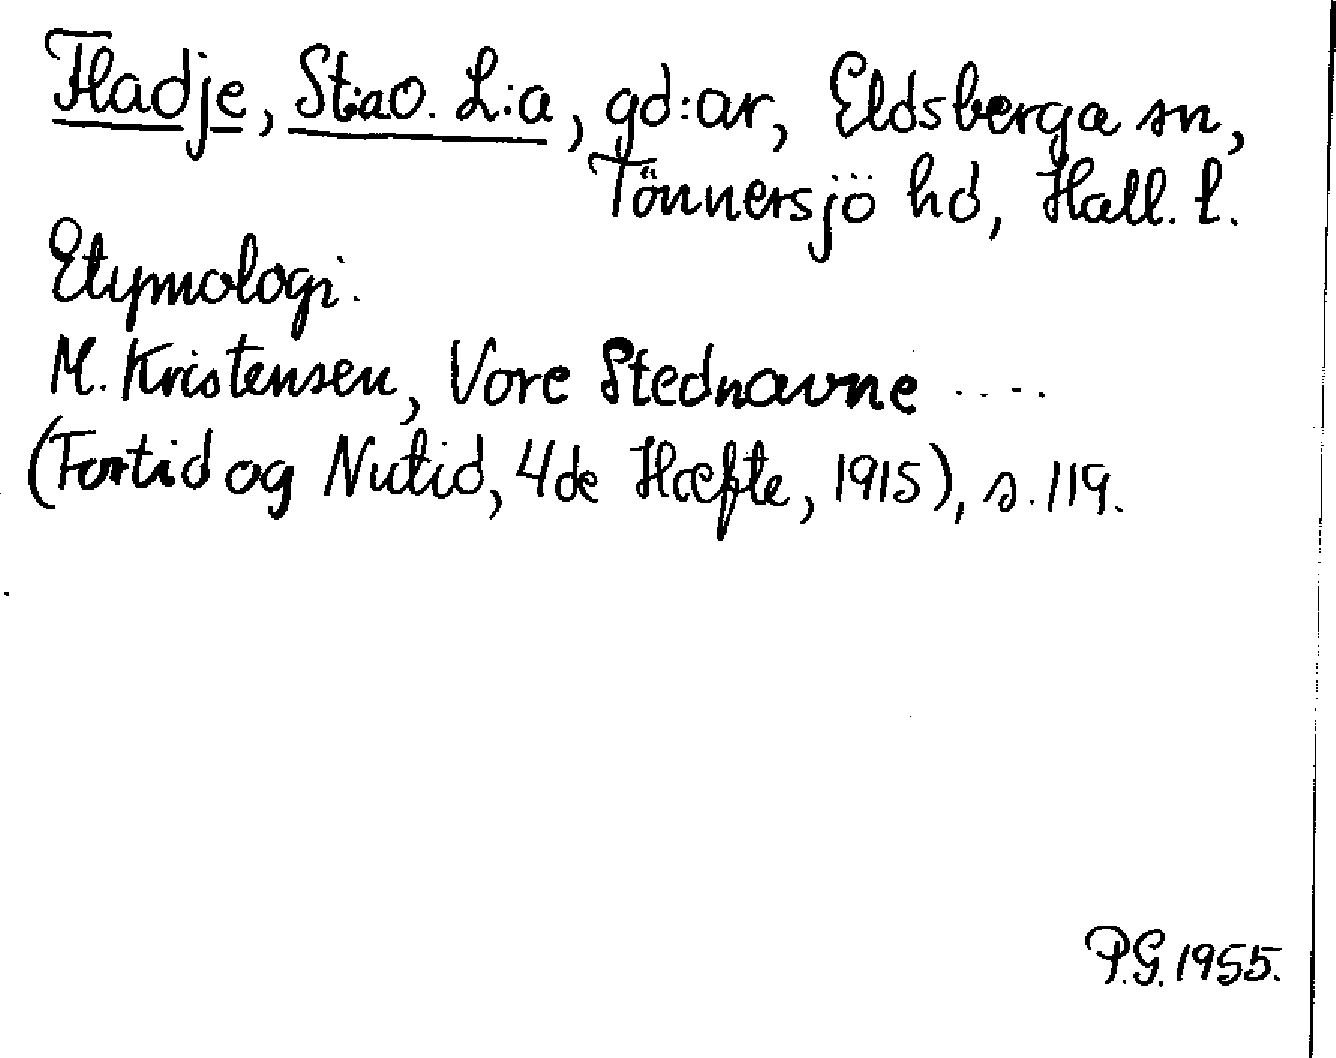 Fladje, St:a o. L:a, gd:ar, Eldsberga sn,
Tönnersjö hd, Hall. l.
Etymologi.
M. Kristensen, Vore Stednavne ....
(Fortid og Nutid, 4de Hæfte, 1915), s. 119.
P.G. 1955.